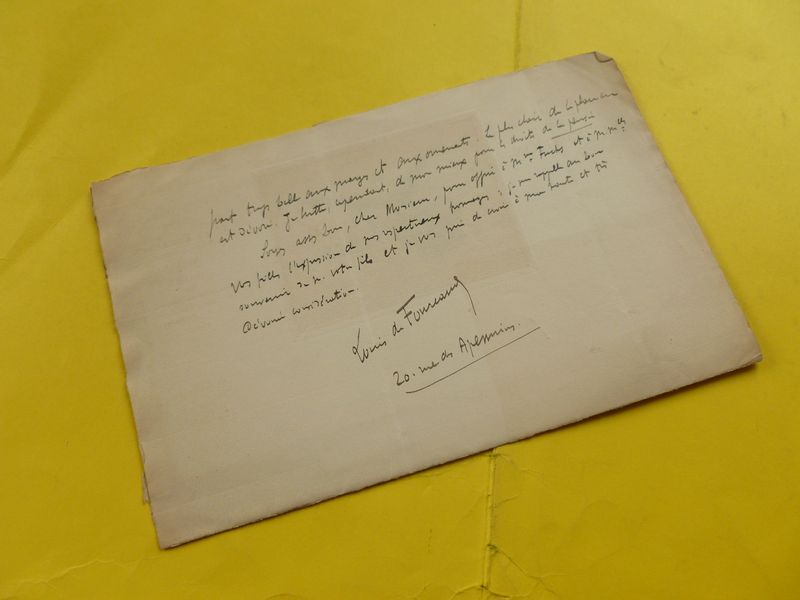 part trop belle aux marges et aux ornements le plus clair de la place en
est dévoré. Je lutte, cependant, de mon mieux pour les droits de la pensée
Soyez assez bon, cher Monsieur, pour offrir à Mme Fuchs et à M.elles
vos filles l'expression de mes respectueux hommages ; je me rappelle au bon
souvenir de M. votre fils et je vous prie de croire à ma haute et très
dévouée considération.
Louis de Fourcaud
20. rue des Apennins.